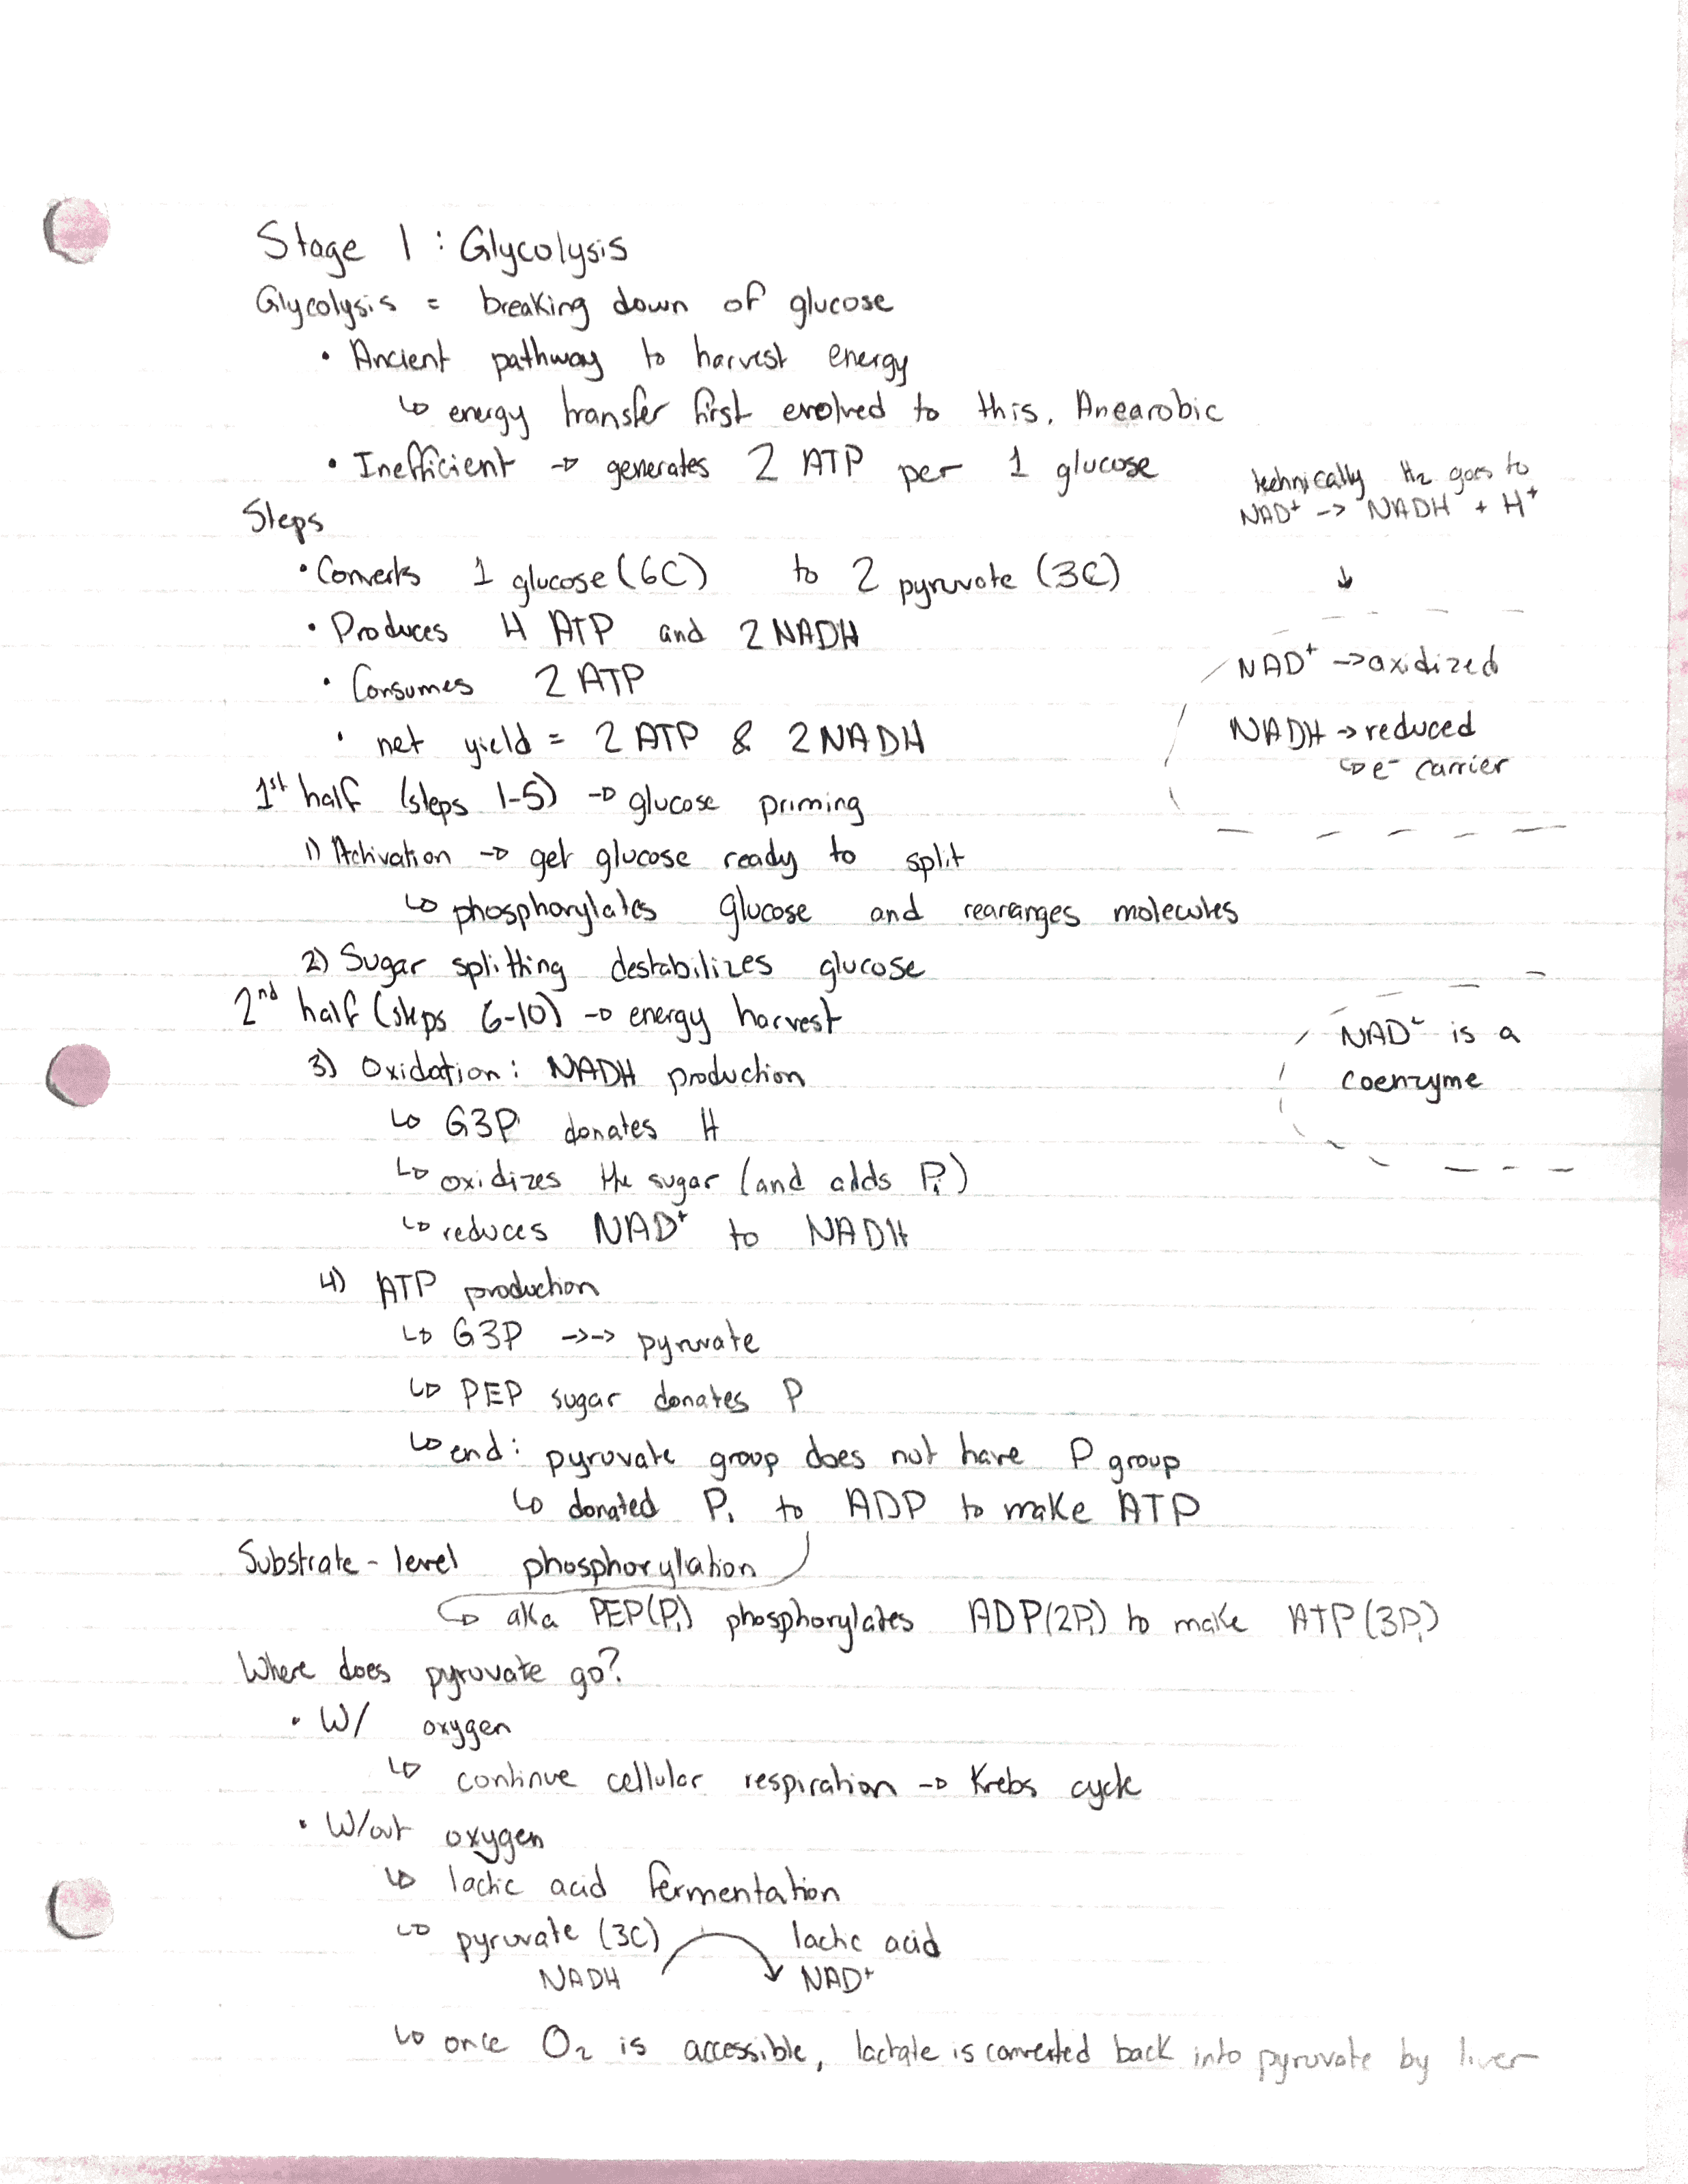 Stage 1 : Glycolysis
Glycolysis = breaking down of glucose
• Ancient pathway to harvest energy
↳ energy transfer first evolved to this. Anearobic
• Inefficient → generates 2 ATP per 1 glucose
technically H₂ goes to
NAD⁺ -> NADH + H⁺
↓
Steps
• Converts 1 glucose (6C) to 2 pyruvate (3C)
• Produces 4 ATP and 2 NADH
• Consumes 2 ATP
• net yield = 2 ATP & 2 NADH
NAD⁺ -> oxidized
NADH -> reduced
↳ e⁻ carrier
1st half (steps 1-5) → glucose priming
1) Activation → get glucose ready to split
↳ phosphorylates glucose and rearanges molecules
2) Sugar splitting destabilizes glucose
2nd half (steps 6-10) → energy harvest
3) Oxidation: NADH production
↳ G3P donates H
↳ oxidizes the sugar (and adds Pi)
↳ reduces NAD⁺ to NADH
NAD⁺ is a
coenzyme
4) ATP production
↳ G3P ->-> pyruvate
↳ PEP sugar donates P
↳ end: pyruvate group does not have P group
↳ donated Pi to ADP to make ATP
Substrate-level phosphorylation
↳ aka PEP(Pi) phosphorylates ADP(2Pi) to make ATP(3Pi)
Where does pyruvate go?
• W/ oxygen
↳ continue cellular respiration → Krebs cycle
• W/out oxygen
↳ lactic acid fermentation
↳ pyruvate (3C) lactic acid
NADH NAD⁺
↳ once O₂ is accessible, lactate is converted back into pyruvate by liver